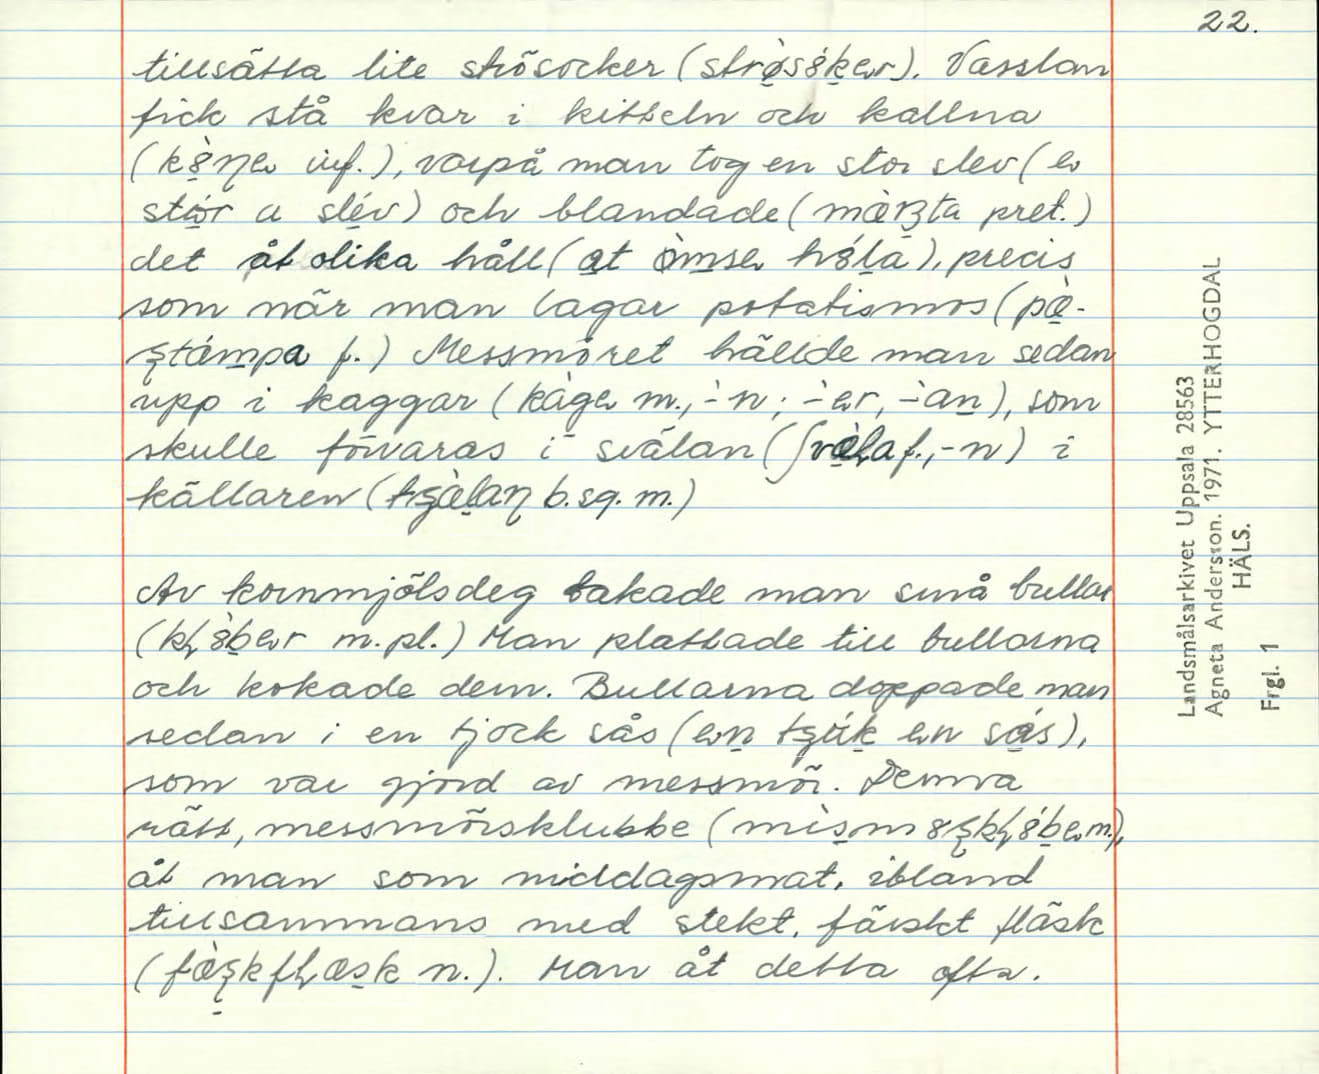 22.
tillsätta lite strösocker (strø̀s8kər). Vasslan
fick stå kvar i kitteln och kallna
(k8̀ηə inf.), varpå man tog en stor slev (ə
stór a slév) och blandade (mæ̀rʒta pret.)
det åt olika håll (at òmsə h8́la), precis
som när man lagar potatismos (pæ̀-
ʂtámpa f.) Messmöret hällde man sedan
upp i kaggar (kàgə m., -̀n; -̀ər, -̀an), som
skulle förvaras i svälan (ʃvæ̀ɽa f., -n) i
källaren (tʂæ̀laη b.sg. m.)
Av kornmjölsdeg bakade man små bullar
(kɽ8̀bər m.pl.) Man plattade till bullarna
och kokade dem. Bullarna doppade man
sedan i en tjock sås (ən tʂúk ən sás),
som var gjord av messmör. Denna
rätt, messmörsklubbe (mìsm8ʂkɽ8́bə m.),
åt man som middagsmat, ibland
tillsammans med stekt, färskt fläsk
(fæ̀ʂkfɽæsk n.). Man åt detta ofta.
Landsmålsarkivet Uppsala 28563
Agneta Andersson. 1971. YTTERHOGDAL
HÄLS.
Frgl. 1